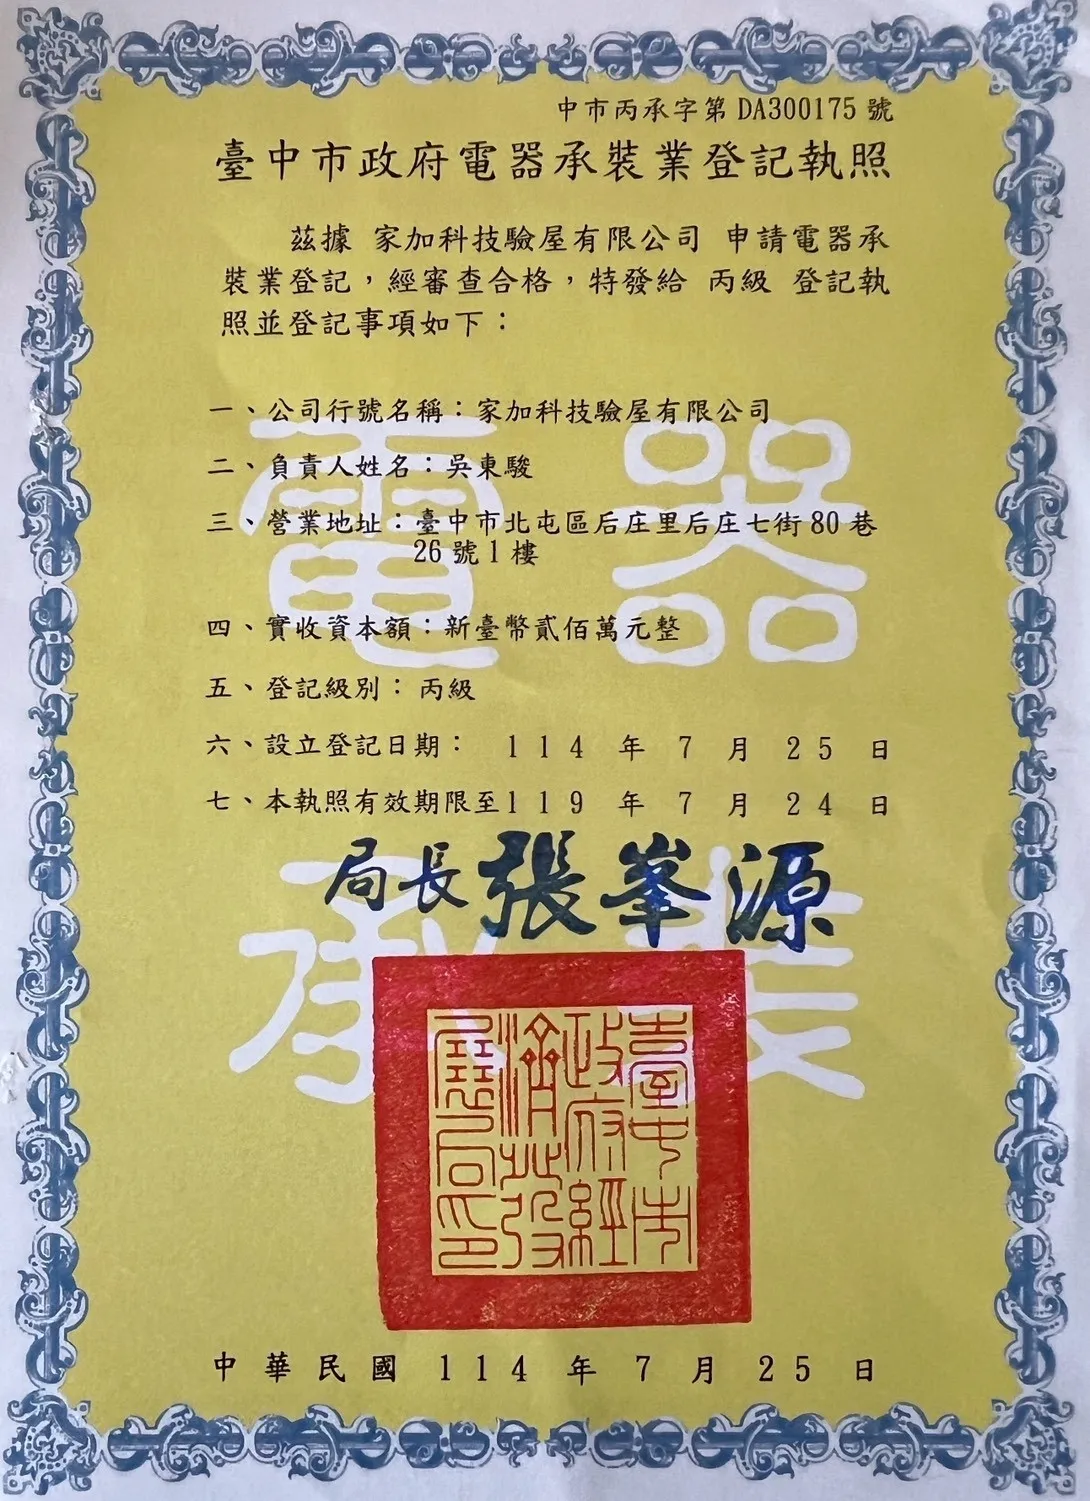 中市丙承字第 DA300175 號
臺中市政府電器承裝業登記執照
茲據 家加科技驗屋有限公司 申請電器承
裝業登記，經審查合格，特發給 丙級 登記執
照並登記事項如下：
一、公司行號名稱：家加科技驗屋有限公司
二、負責人姓名：吳東駿
三、營業地址：臺中市北屯區后庄里后庄七街80巷
26號1樓
四、實收資本額：新臺幣貳佰萬元整
五、登記級別：丙級
六、設立登記日期： 114 年 7 月 25 日
七、本執照有效期限至119 年 7 月 24 日
電器
承裝業
局長 張峯源
臺中市政府經濟發展局印
中華民國 114 年 7 月 25 日